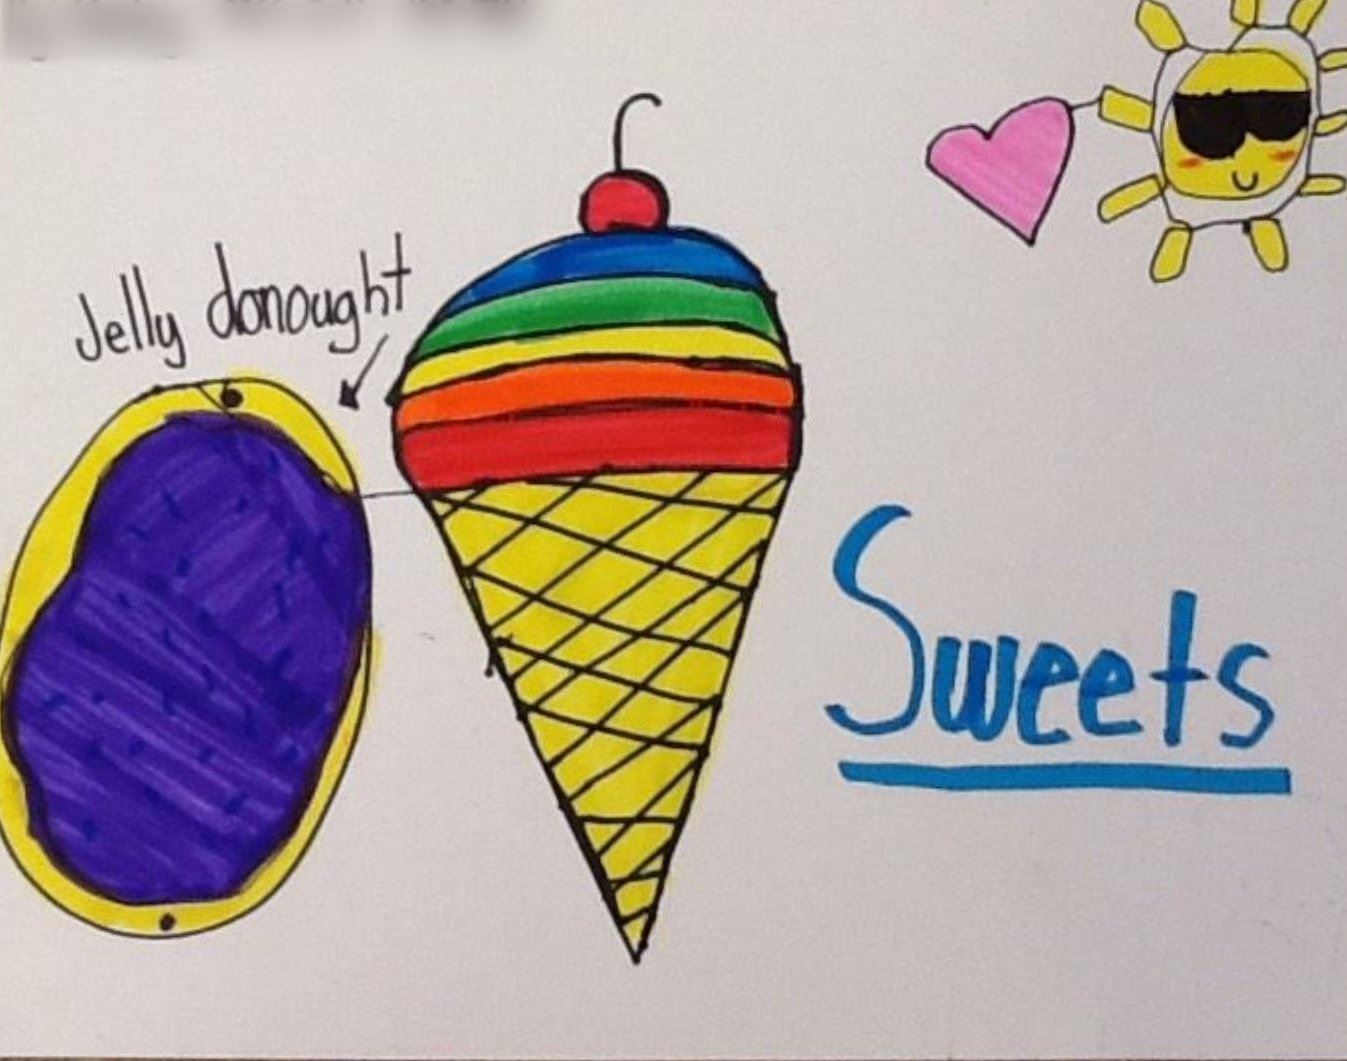 Jelly donought
Sweets